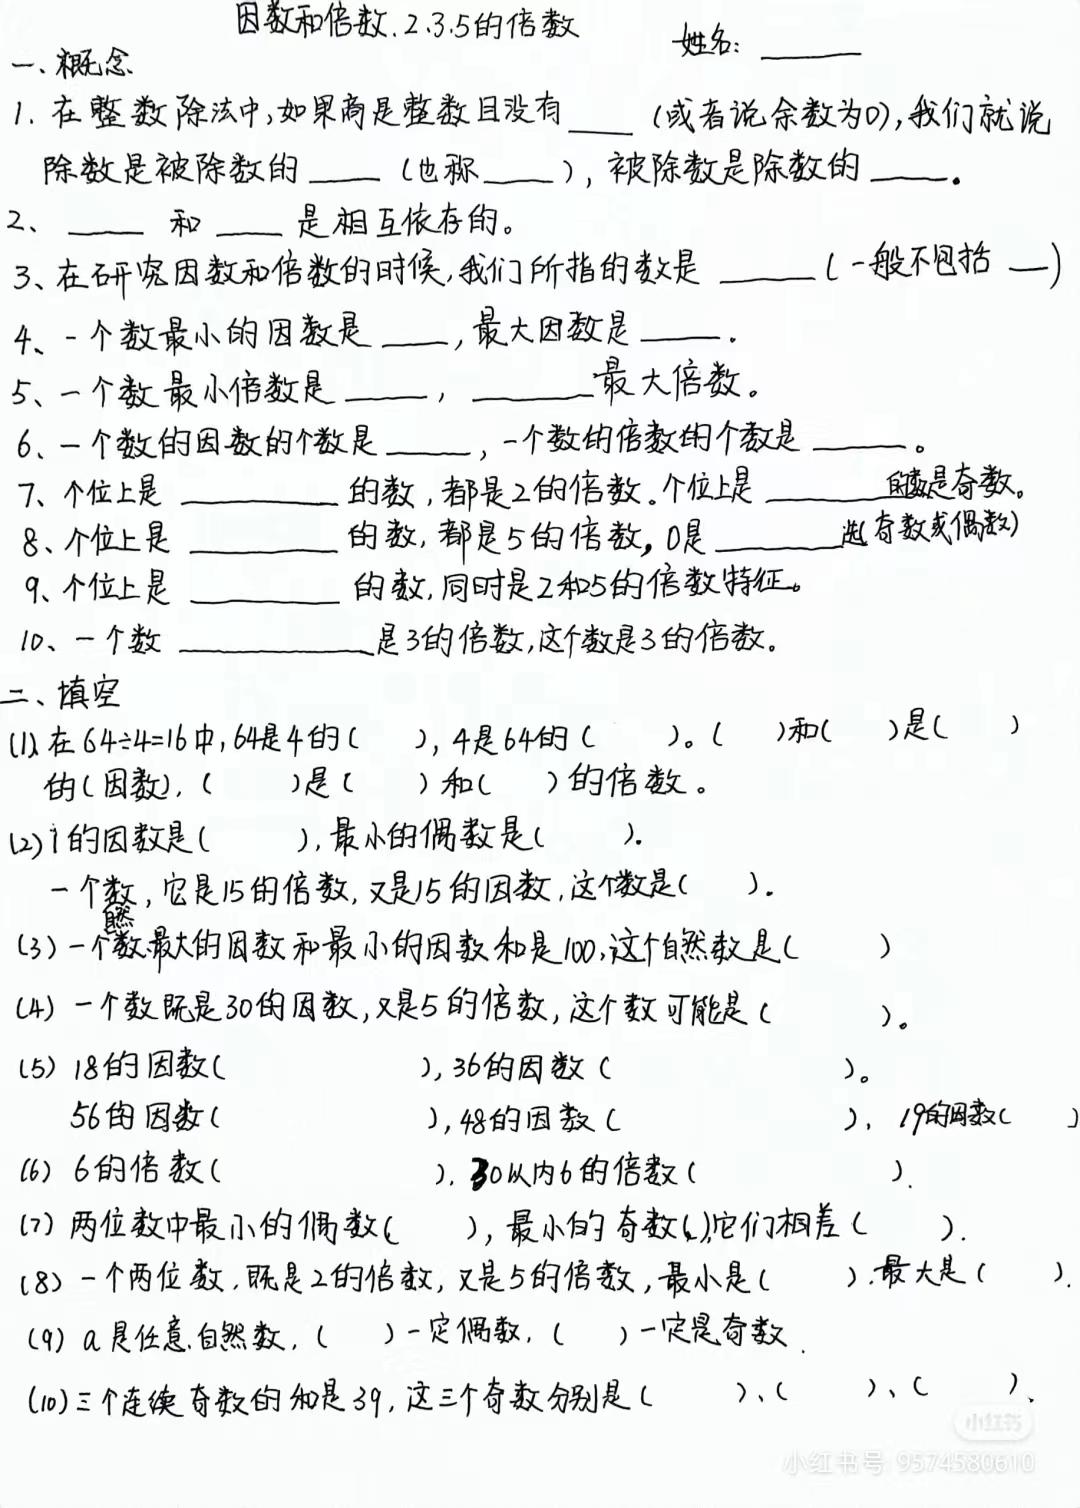 因数和倍数.2.3.5的倍数
姓名：______
一、概念
1. 在整数除法中,如果商是整数且没有____（或者说余数为0),我们就说
除数是被除数的____（也称____），被除数是除数的____。
2、____和____是相互依存的。
3、在研究因数和倍数的时候,我们所指的数是______(一般不包括__)
4、一个数最小的因数是____,最大因数是____.
5、一个数最小倍数是_____，_______最大倍数。
6、一个数的因数的个数是_____,一个数的倍数的个数是_____。
7、个位上是_________的数,都是2的倍数。个位上是_______的数是奇数。
8、个位上是_________的数,都是5的倍数,0是_______(选奇数或偶数)
9、个位上是_________的数,同时是2和5的倍数特征。
10、一个数___________是3的倍数,这个数是3的倍数。
二、填空
(1)、在64÷4=16中,64是4的(  ),4是64的(  )。(  )和(  )是(  )
的(因数),(  )是(  )和(  )的倍数。
(2)1的因数是(  ),最小的偶数是(  ).
一个数,它是15的倍数,又是15的因数,这个数是(  ).
(3)一个自然数最大的因数和最小的因数和是100,这个自然数是(  )
(4)一个数既是30的因数,又是5的倍数,这个数可能是(  )。
(5)18的因数(  ),36的因数(  )。
56的因数(  ),48的因数(  ),19的因数(  )
(6)6的倍数(  ),30以内6的倍数(  ).
(7)两位数中最小的偶数(  ),最小的奇数(  ),它们相差(  ).
(8)一个两位数,既是2的倍数,又是5的倍数,最小是(  ).最大是(  ).
(9)a是任意自然数,(  )一定偶数,(  )一定是奇数.
(10)三个连续奇数的和是39,这三个奇数分别是(  )、(  )、(  ).
小红书
小红书号 9574580610